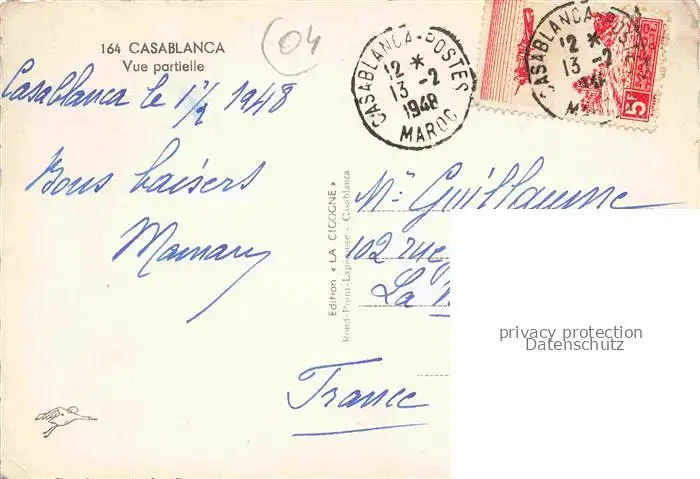 164 CASABLANCA
Vue partielle
04
CASABLANCA-POSTES
12 *
13 -2
1948
MAROC
CASABLANCA-POSTES
12 *
13 -2
5F
Casablanca le 1948
Bons baisers
Mamany
Edition « LA CIGOGNE »
Rond-Point-Lapérouse - Casablanca
Mr Guillaume
102 rue
La
France
privacy protection
Datenschutz